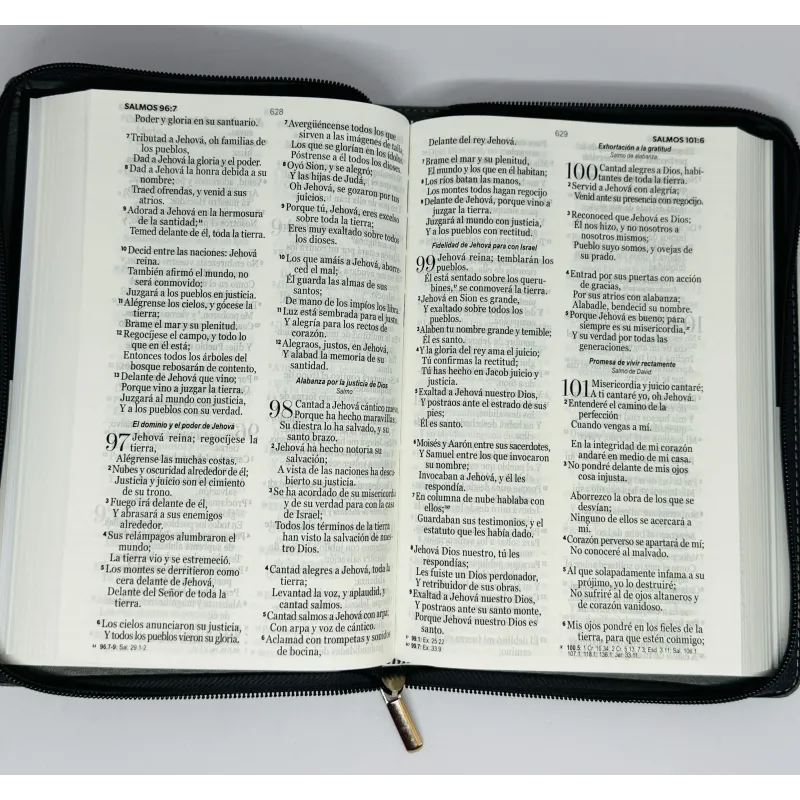 SALMOS 96:7
628
Poder y gloria en su santuario.
7Tributad a Jehová, oh familias de
los pueblos,
Dad a Jehová la gloria y el poder.
8Dad a Jehová la honra debida a su
nombre;
Traed ofrendas, y venid a sus
atrios.
9Adorad a Jehová en la hermosura
de la santidad;
Temed delante de él, toda la tierra.
10Decid entre las naciones: Jehová
reina.
También afirmó el mundo, no
será conmovido;
Juzgará a los pueblos en justicia.
11Alégrense los cielos, y gócese la
tierra;
Brame el mar y su plenitud.
12Regocíjese el campo, y todo lo
que en él está;
Entonces todos los árboles del
bosque rebosarán de contento,
13Delante de Jehová que vino;
Porque vino a juzgar la tierra.
Juzgará al mundo con justicia,
Y a los pueblos con su verdad.
El dominio y el poder de Jehová
97 Jehová reina; regocíjese la
tierra,
Alégrense las muchas costas.
2Nubes y oscuridad alrededor de él;
Justicia y juicio son el cimiento
de su trono.
3Fuego irá delante de él,
Y abrasará a sus enemigos
alrededor.
4Sus relámpagos alumbraron el
mundo;
La tierra vio y se estremeció.
5Los montes se derritieron como
cera delante de Jehová,
Delante del Señor de toda la
tierra.
6Los cielos anunciaron su justicia,
Y todos los pueblos vieron su gloria,
96.7-9: Sal. 29.1-2
7Avergüéncense todos los que
sirven a las imágenes de talla,
Los que se glorían en los ídolos
Póstrense a él todos los dioses.
8Oyó Sion, y se alegró;
Y las hijas de Judá,
Oh Jehová, se gozaron por tus
juicios.
9Porque tú, Jehová, eres excelso
sobre toda la tierra;
Eres muy exaltado sobre todos
los dioses.
10Los que amáis a Jehová, aborre-
ced el mal;
Él guarda las almas de sus
santos;
De mano de los impíos los libra.
11Luz está sembrada para el justo,
Y alegría para los rectos de
corazón.
12Alegraos, justos, en Jehová,
Y alabad la memoria de su
santidad.
Alabanza por la justicia de Dios
Salmo
98 Cantad a Jehová cántico nuevo,
Porque ha hecho maravillas;
Su diestra lo ha salvado, y su
santo brazo.
2Jehová ha hecho notoria su
salvación;
A vista de las naciones ha descu-
bierto su justicia.
3Se ha acordado de su misericordia
y de su verdad para con la casa
de Israel;
Todos los términos de la tierra
han visto la salvación de nues-
tro Dios.
4Cantad alegres a Jehová, toda la
tierra;
Levantad la voz, y aplaudid, y
cantad salmos.
5Cantad salmos a Jehová con arpa;
Con arpa y voz de cántico.
6Aclamad con trompetas y sonidos
de bocina,
629
SALMOS 101:6
Delante del rey Jehová.
7Brame el mar y su plenitud,
El mundo y los que en él habitan;
8Los ríos batan las manos,
Los montes todos hagan regocijo
9Delante de Jehová, porque vino a
juzgar la tierra.
Juzgará al mundo con justicia,
Y a los pueblos con rectitud.
Fidelidad de Jehová para con Israel
99 Jehová reina; temblarán los
pueblos.
Él está sentado sobre los queru-
bines, se conmoverá la tierra.
2Jehová en Sion es grande,
Y exaltado sobre todos los
pueblos.
3Alaben tu nombre grande y temible;
Él es santo.
4Y la gloria del rey ama el juicio;
Tú confirmas la rectitud;
Tú has hecho en Jacob juicio y
justicia.
5Exaltad a Jehová nuestro Dios,
Y postraos ante el estrado de sus
pies;
Él es santo.
6Moisés y Aarón entre sus sacerdotes,
Y Samuel entre los que invocaron
su nombre;
Invocaban a Jehová, y él les
respondía.
7En columna de nube hablaba con
ellos;
Guardaban sus testimonios, y el
estatuto que les había dado.
8Jehová Dios nuestro, tú les
respondías;
Les fuiste un Dios perdonador,
Y retribuidor de sus obras.
9Exaltad a Jehová nuestro Dios,
Y postraos ante su santo monte,
Porque Jehová nuestro Dios es
santo.
99.1: Ex. 25.22
99.7: Ex. 33.9
Exhortación a la gratitud
Salmo de alabanza.
100 Cantad alegres a Dios, habi-
tantes de toda la tierra.
2Servid a Jehová con alegría;
Venid ante su presencia con regocijo.
3Reconoced que Jehová es Dios;
Él nos hizo, y no nosotros a
nosotros mismos;
Pueblo suyo somos, y ovejas de
su prado.
4Entrad por sus puertas con acción
de gracias,
Por sus atrios con alabanza;
Alabadle, bendecid su nombre.
5Porque Jehová es bueno; para
siempre es su misericordia,
Y su verdad por todas las
generaciones.
Promesa de vivir rectamente
Salmo de David.
101 Misericordia y juicio cantaré;
A ti cantaré yo, oh Jehová.
2Entenderé el camino de la
perfección
Cuando vengas a mí.
En la integridad de mi corazón
andaré en medio de mi casa.
3No pondré delante de mis ojos
cosa injusta.
Aborrezco la obra de los que se
desvían;
Ninguno de ellos se acercará a
mí.
4Corazón perverso se apartará de mí;
No conoceré al malvado.
5Al que solapadamente infama a su
prójimo, yo lo destruiré;
No sufriré al de ojos altaneros y
de corazón vanidoso.
6Mis ojos pondré en los fieles de la
tierra, para que estén conmigo;
100.5: 1 Cr. 16.34; 2 Cr. 5.13; 7.3; Esd. 3.11; Sal. 106.1;
107.1; 118.1; 136.1; Jer. 33.11.